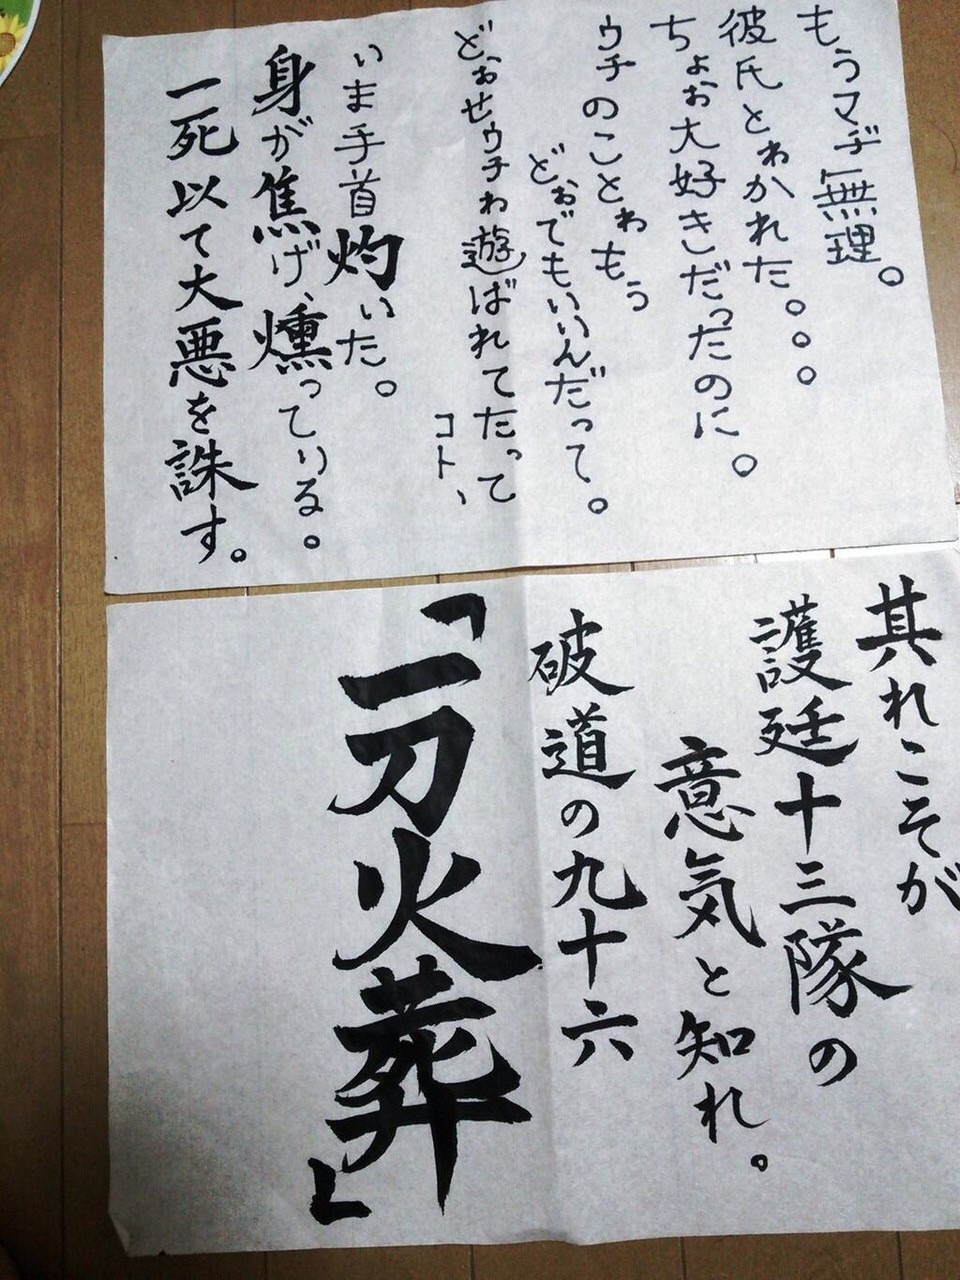 もうマヂ無理。
彼氏とゎかれた。。。
ちょぉ大好きだったのに。
ゥチのことゎもぅ
どぉでもいいんだって。
どぉせゥチゎ遊ばれてたって
コト、
ぃま手首灼ぃた。
身が焦げ、燻ってぃる。
一死以て大悪を誅す。
其れこそが
護廷十三隊の
意気と知れ。
破道の九十六
「一刀火葬」